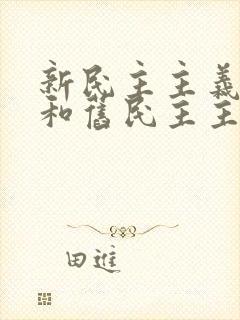 新民主主義
和舊民主主
田進